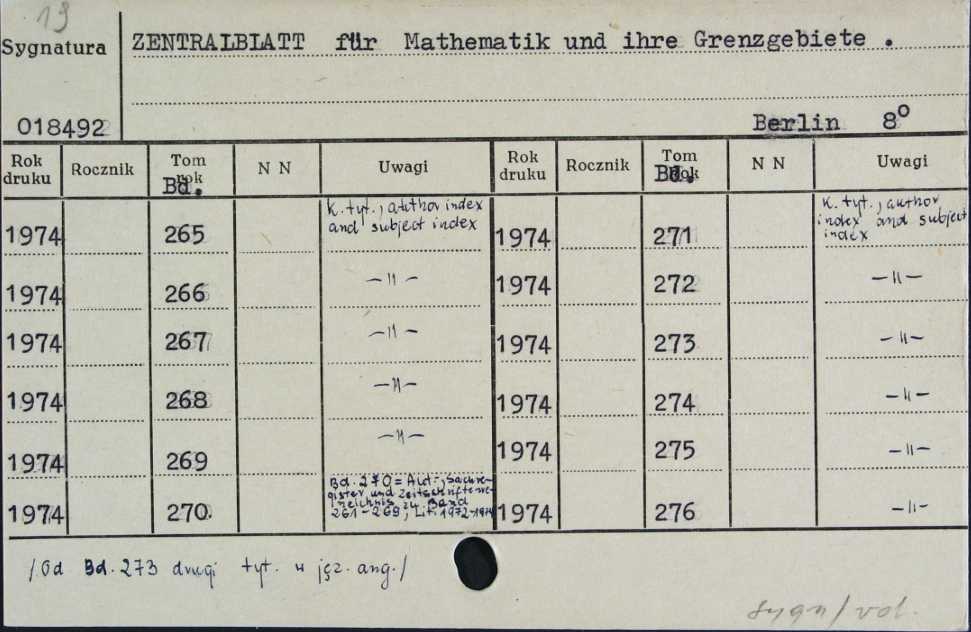 19
Sygnatura ZENTRALBLATT für Mathematik und ihre Grenzgebiete.
018492 Berlin 8⁰
Rok druku Rocznik Tom rok Bd. N N Uwagi Rok druku Rocznik Tom Rok Bd. N N Uwagi
1974 265 K. tyt., author index and subject index 1974 271 K. tyt., author index and subject index
1974 266 -"- 1974 272 -"-
1974 267 -"- 1974 273 -"-
1974 268 -"- 1974 274 -"-
1974 269 -"- 1974 275 -"-
1974 270 Bd. 270 = Aut-, Sachre-
gister und Zeitschriftenve-
zeichnis zu Band
261-269, Lit. 1972-1974 1974 276 -"-
/Od Bd. 273 drugi tyt. w jęz. ang./
sygn/vol.